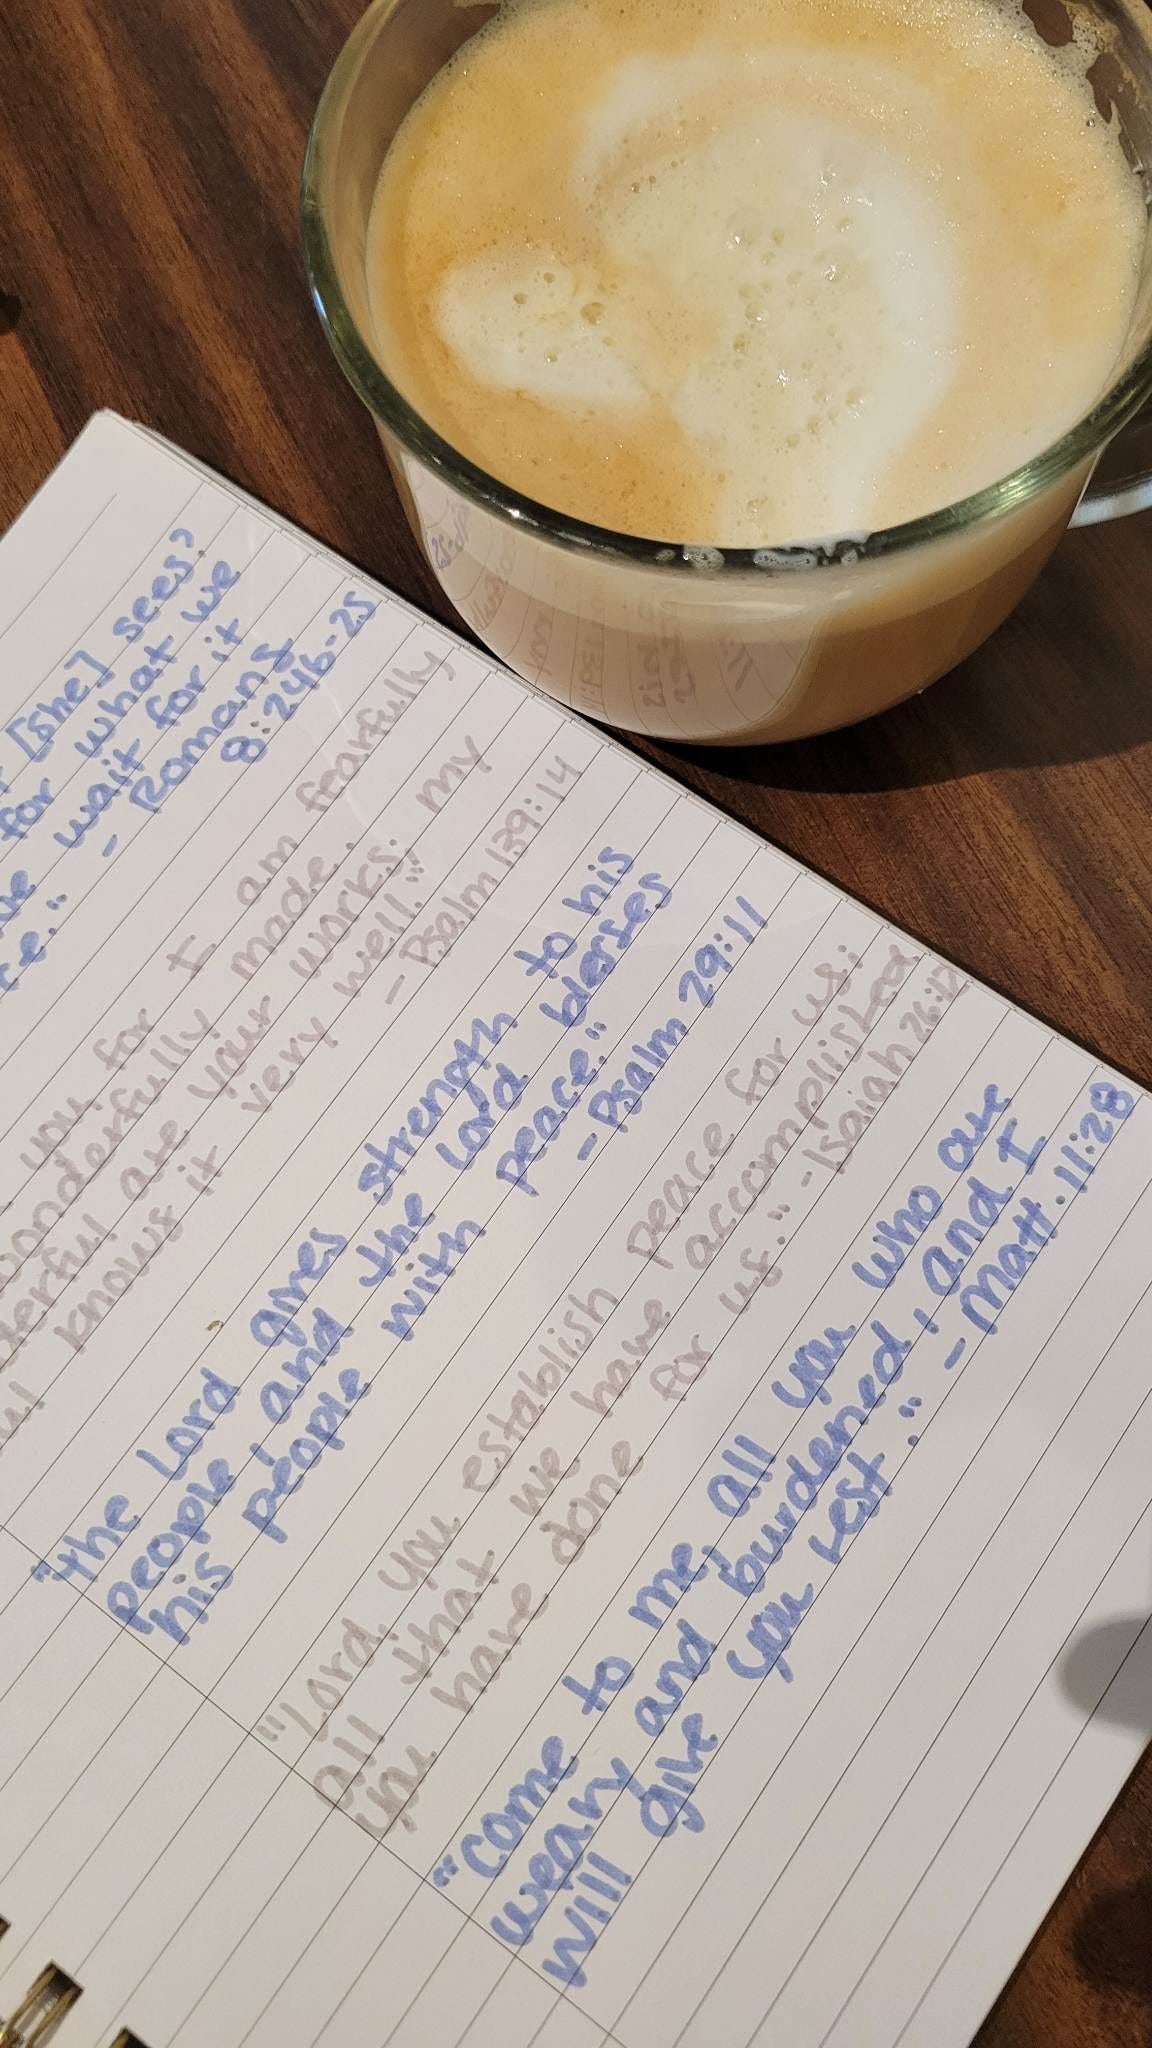 [she] sees?
for what we
wait for it
- Romans
8:24b-25
you for I am fearfully
wonderfully made.
are your works; my
knows it very well."
- Psalm 139:14
"The Lord gives strength to his
people and the Lord blesses
his people with peace."
- Psalm 29:11
"Lord, you establish peace for us;
all that we have accomplished
you have done for us." - Isaiah 26:12
"Come to me, all you who are
weary and burdened, and I
will give you rest." - Matt. 11:28